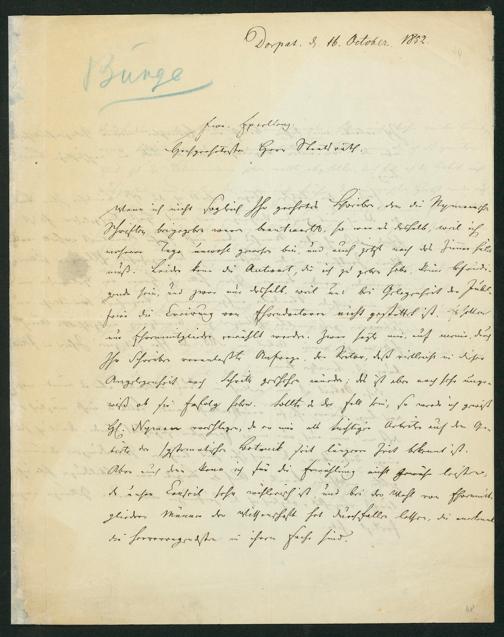 Dorpat. d. 16. October 1852.
Bunge
Ew. Excellenz
Hochgeehrtester Herr Staatsrath.
Wenn ich nicht sogleich Ihr geehrtes Schreiben, dem die Nymanschen
Schriften beigegeben waren beantwortete, so war es deshalb, weil ich
mehrere Tage unwohl gewesen bin, und auch jetzt noch das Zimmer hüten
muß. Leider kann die Antwort, die ich zu geben habe, keine befriedi-
gende sein, und zwar nur deshalb, weil uns bei Gelegenheit des Jubel-
festes die Creirung von Ehrendoctoren nicht gestattet ist.
nur Ehrenmitglieder erwählt werden. Zwar sagte mir, auf meine, durch
Ihr Schreiben veranlaßte Anfrage, der Rector, daß vielleicht in dieser
Angelegenheit noch Schritte geschehen würden; es ist aber noch sehr unge-
wiß ob sie Erfolg haben. Sollte es der Fall sein, so werde ich gewiß
H. Nyman vorschlagen, der mir als tüchtiger Arbeiter auf dem Ge-
biete der systematischen Botanik seit längerer Zeit bekannt ist.
Aber auch dann kann ich für die Erwählung nicht Gewähr leisten,
da unser Conseil sehr zahlreich ist und bei der Wahl von Ehrenmit-
gliedern Männer der Wissenschaft hat durchfallen lassen, die anerkannt
die hervorragendsten in ihrem Fache sind.